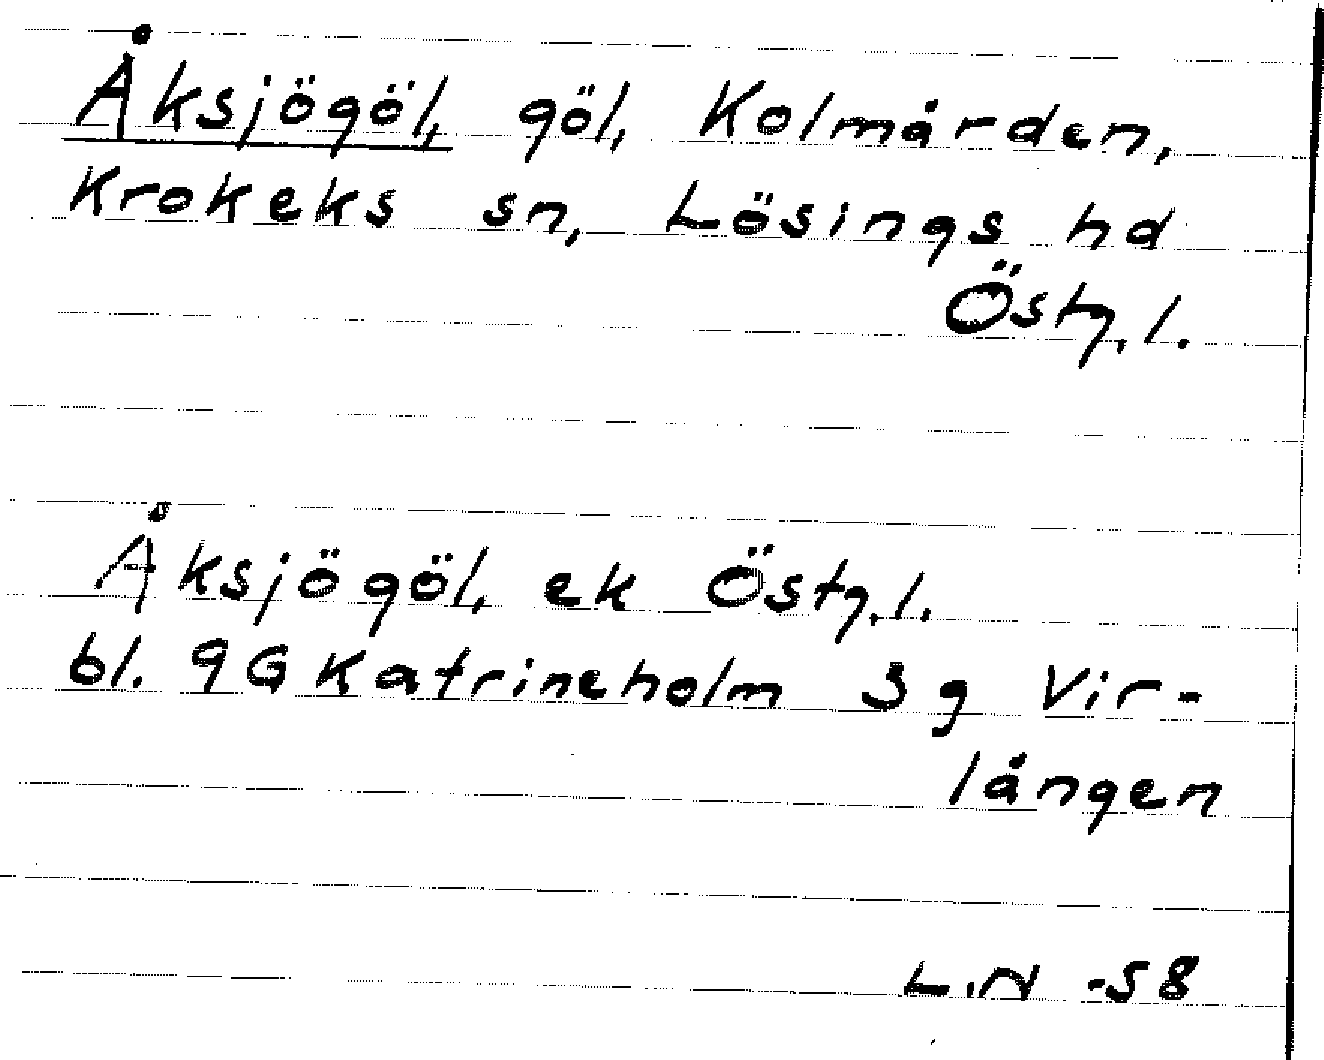 Åksjögöl, göl, Kolmården,
Krokeks sn, Lösings hd
Östg. l.
Åksjögöl, ek Östg. l.
bl. 9G Katrineholm 3 g Vir-
lången
L.N -58